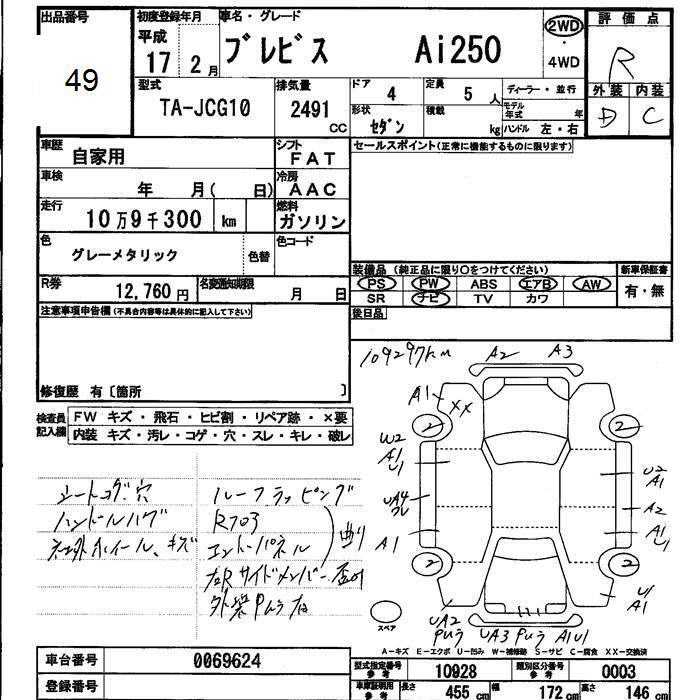 出品番号 49
初度登録年月 平成 17 2月
車名・グレード ブレビス Ai250
2WD ・ 4WD
評価点 R
外装 D 内装 C
型式 TA-JCG10
排気量 2491 cc
ドア 4
定員 5 人
形状 セダン
積載 kg
ディーラー・並行
モデル年式 年
ハンドル 左・右
車歴 自家用
シフト FAT
車検 年 月( 日)
冷房 AAC
走行 10万9千300 km
燃料 ガソリン
色 グレーメタリック 色替
色コード
R券 12,760円
名変通知期限 月 日
セールスポイント(正常に機能するものに限ります)
装備品 (純正品に限り○をつけてください)
PS PW ABS エアB AW
SR ナビ TV カワ
新車保証書 有・無
後日品
注意事項申告欄(不具合内容等は具体的に記入して下さい)
修復歴 有〔箇所 〕
検査員記入欄
FW キズ・飛石・ヒビ割・リペア跡・×要
内装 キズ・汚レ・コゲ・穴・スレ・キレ・破レ
シートコゲ穴
ハンドルハゲ
ネジ外ホイール、キズ
ルーフラッピング
R703
エンドパネル 曲り
左Rサイドメンバー歪み
109297km
A2 A3
A1 XX
2 2
W2
A1
U1
UA4
A1
U2
A1
A2
A1
U1
2 2
U1
A1
UA2 UA3 A1U1
スペア
A-キズ E-エクボ U-凹み W-補修跡 S-サビ C-腐食 XX-交換済
車台番号 0069624
登録番号
型式指定番号 参考 10928
類別区分番号 参考 0003
車庫証明用 参考 長さ 455 cm 幅 172 cm 高さ 146 cm